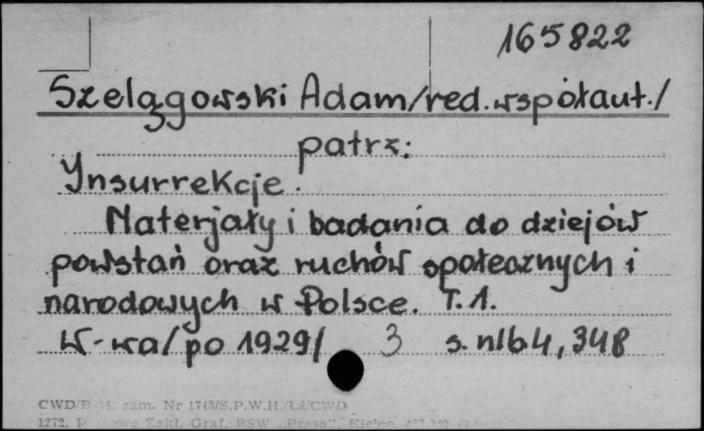 165822
Szelągowski Adam/red.współaut./
patrz:
Insurrekcje.
Materjały i badania do dziejów
powstań oraz ruchów społecznych i
narodowych w Polsce. T.1.
W-wa/po 1929/ 3 s. nlb 4, 348
CWD/B 14. zam. Nr 1743/S.P.W.H./Ł.Ż/CWD
1272. Zakł. Graf. RSW „Prasa”, Kielce.